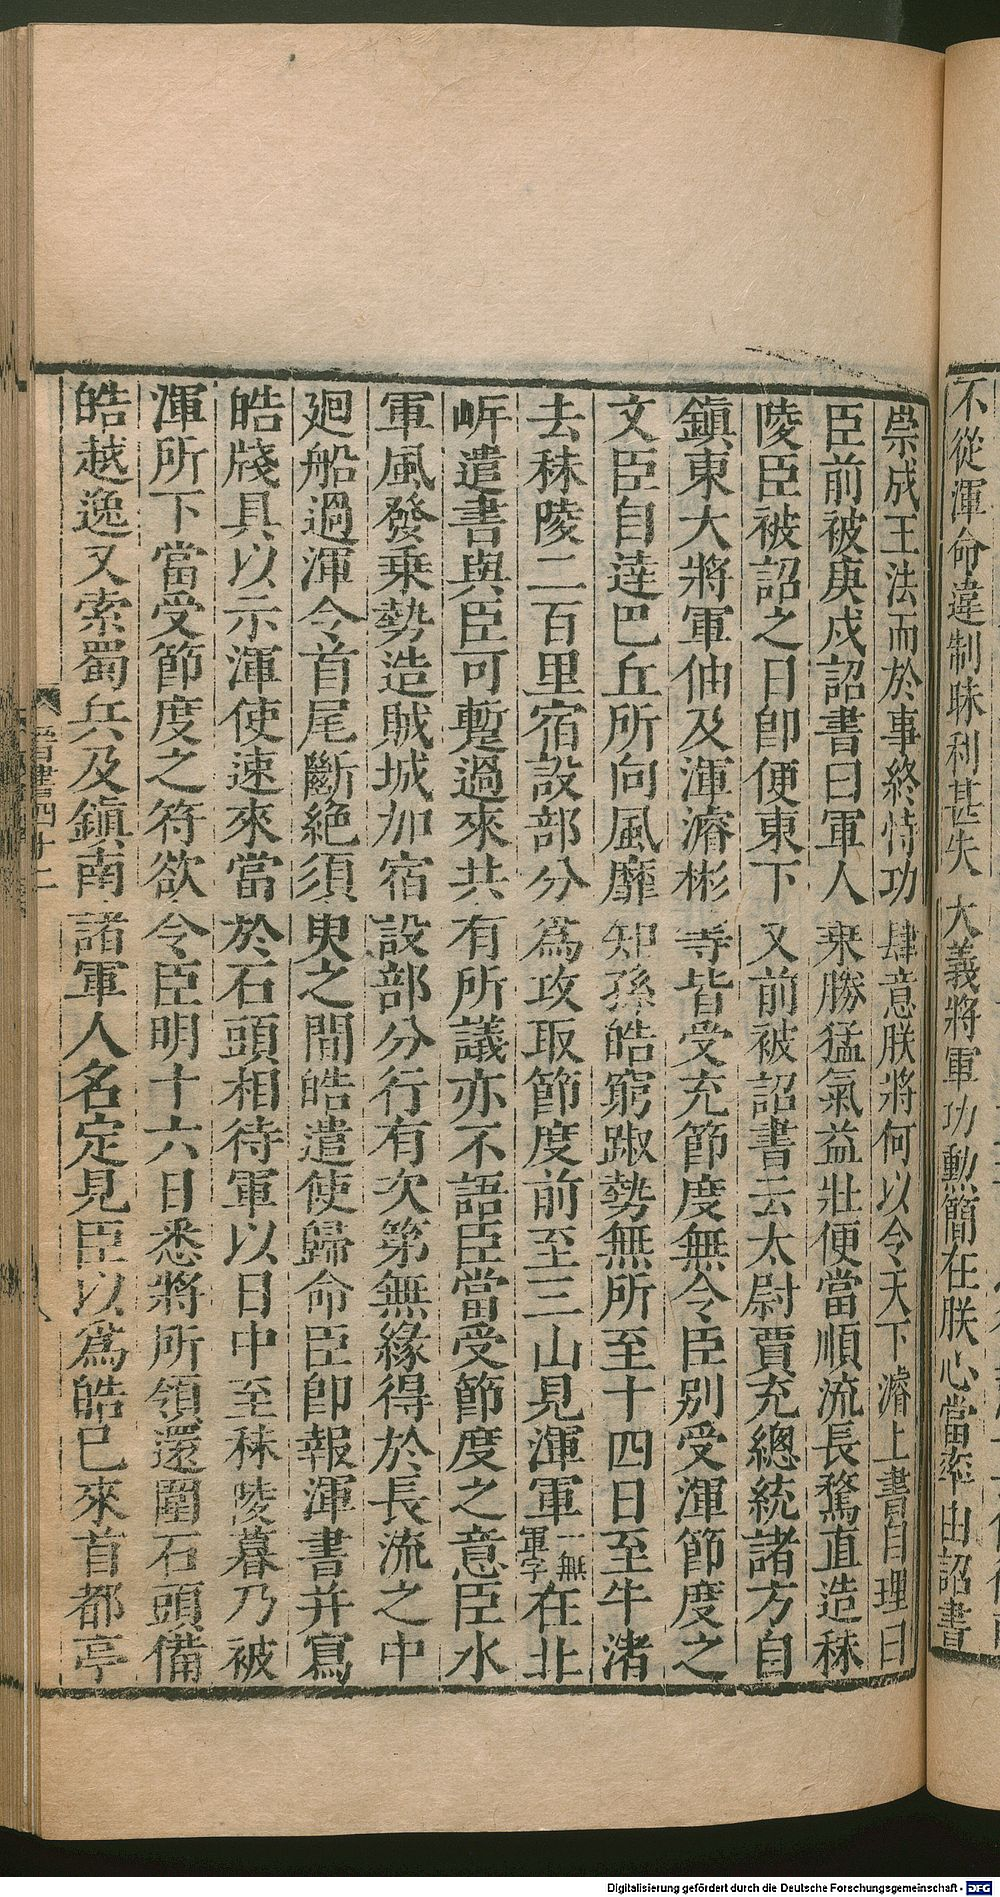 不從渾命違制昧利甚失大義將軍功勳簡在朕心當率由詔書
崇成王法而於事終恃功肆意朕將何以令天下濬上書自理曰
臣前被庚戌詔書曰軍人乗勝猛氣益壯便當順流長騖直造秣
陵臣被詔之日卽便東下又前被詔書云太尉賈充總統諸方自
鎮東大將軍伷及渾濬彬等皆受充節度無令臣別受渾節度之
文臣自逹巴丘所向風靡知孫皓窮踧勢無所至十四日至牛渚
去秣陵二百里宿設部分爲攻取節度前至三山見渾軍一無軍字在北
岍遣書與臣可蹔過來共有所議亦不語臣當受節度之意臣水
軍風發乗勢造賊城加宿設部分行有次第無緣得於長流之中
廻船過渾令首尾斷絶須臾之間皓遣使歸命臣卽報渾書并寫
皓牋具以示渾使速來當於石頭相待軍以日中至秣陵暮乃被
渾所下當受節度之符欲令臣明十六日悉將所領還圍石頭備
皓越逸又索蜀兵及鎮南諸軍人名定見臣以爲皓已來首都亭
晉書四十二
Digitalisierung gefördert durch die Deutsche Forschungsgemeinschaft - DFG